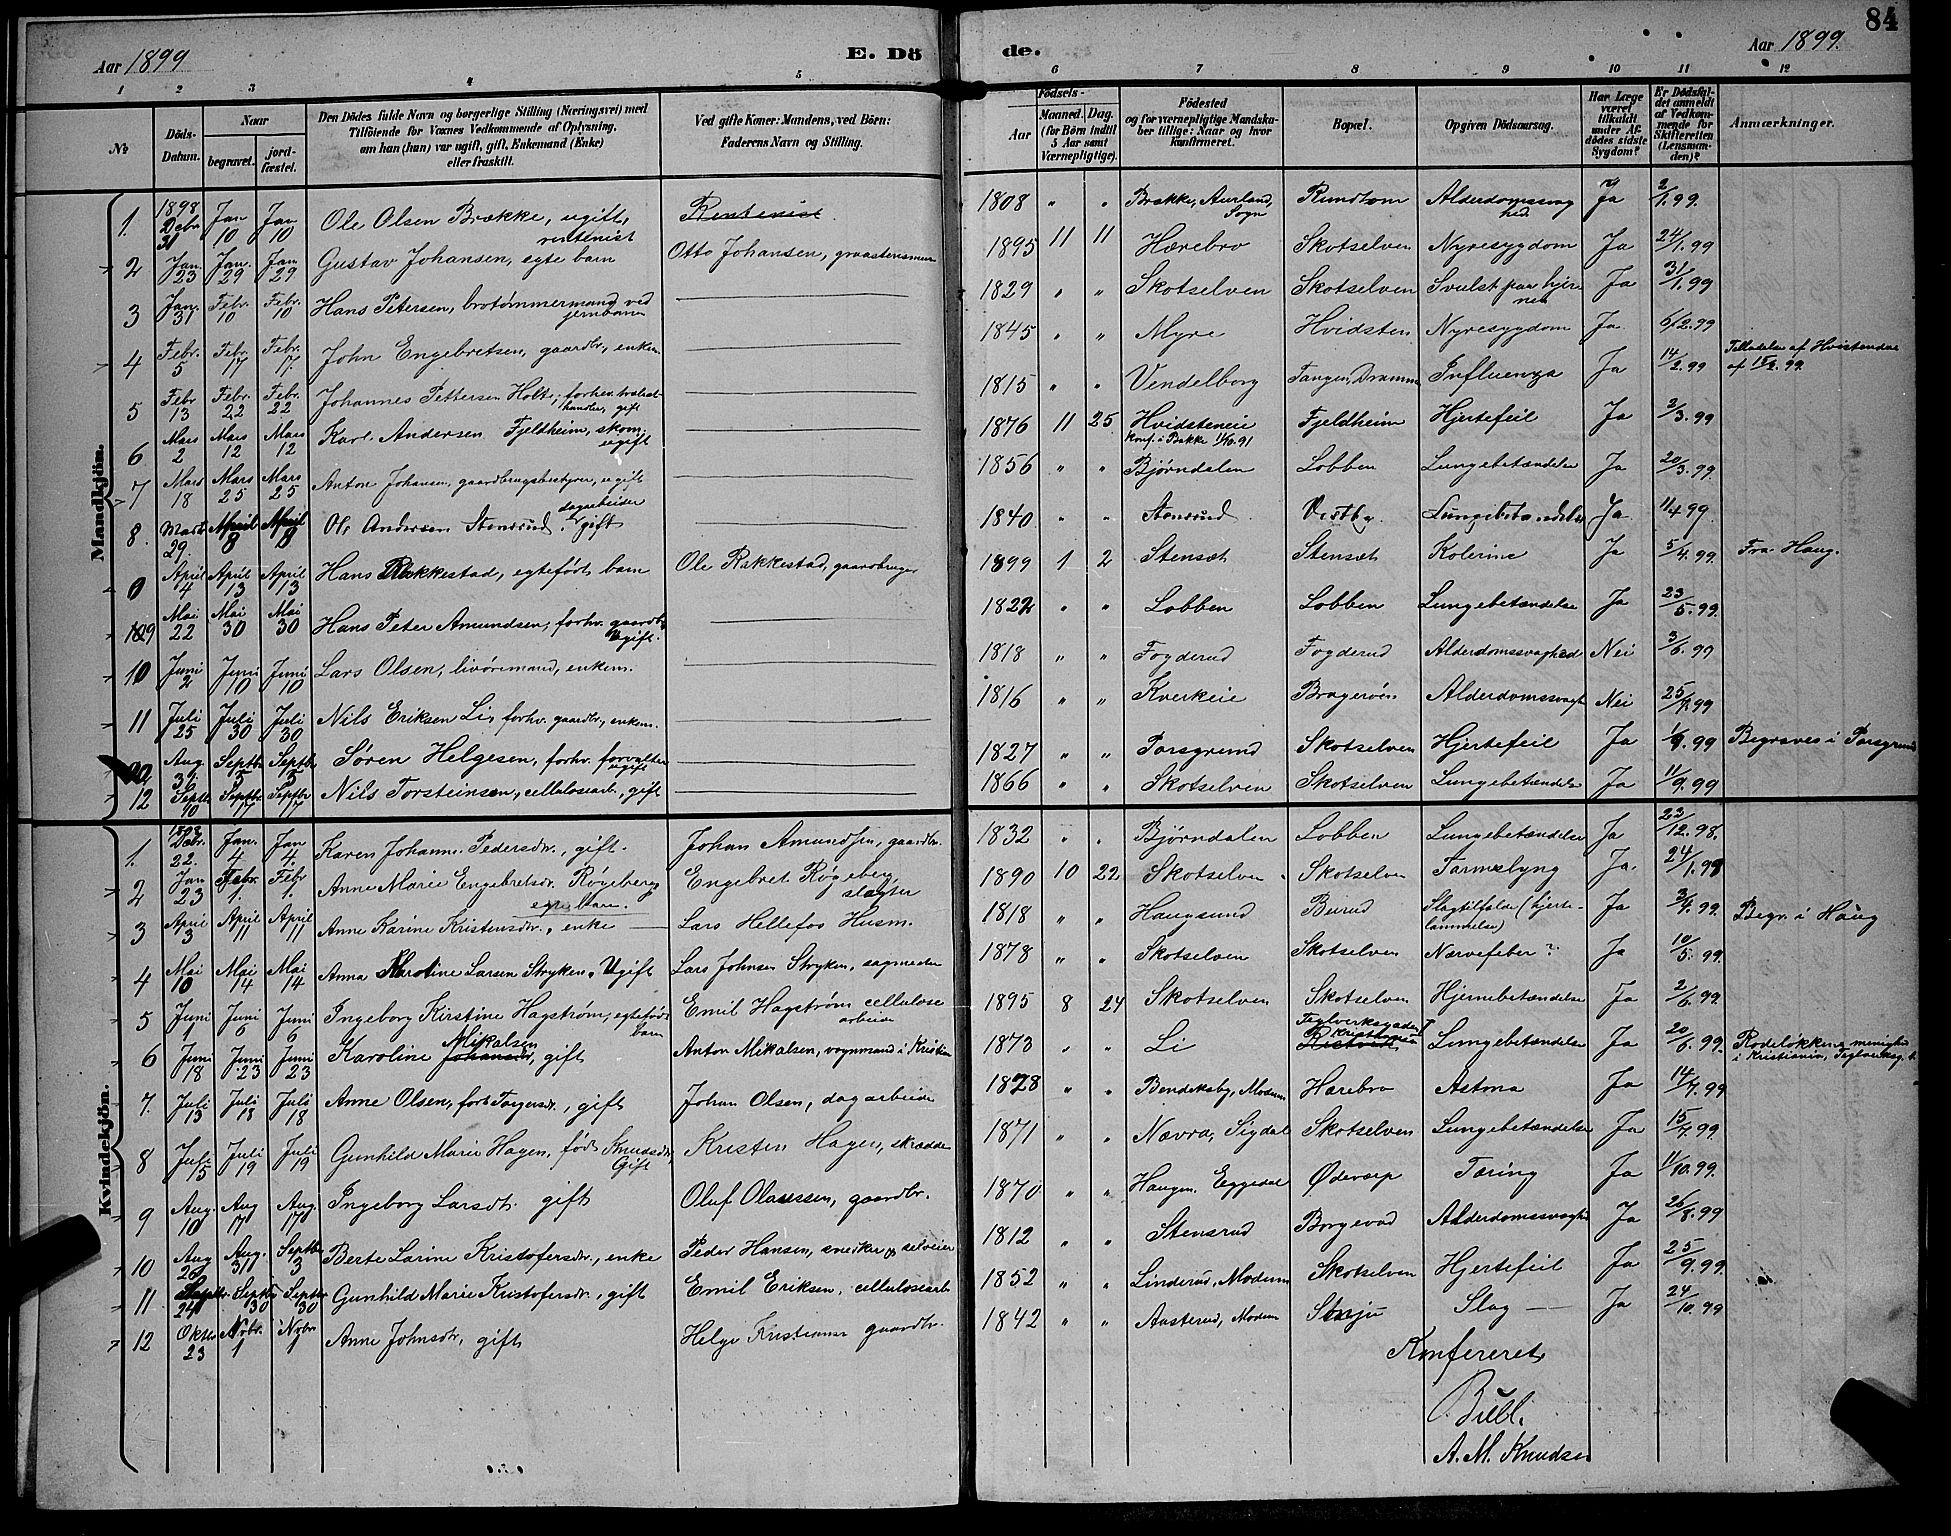 Aar 1899
E. Dö
de.
Aar 1899.
84
1 2 3 4 5 6 7 8 9 10 11 12
No
Döds-Datum.
Naar
begravet.
jordfæstet.
Den Dödes fulde Navn og borgerlige Stilling (Næringsvei) med
Tilföiende for Voxnes Vedkommende af Oplysning,
om han (hun) var ugift, gift, Enkemand (Enke)
eller fraskilt.
Ved gifte Koner: Mandens, ved Börn:
Faderens Navn og Stilling.
Födsels-
Aar
Maaned. Dag.
(for Börn indtil
5 Aar samt
Værnepligtige).
Födested
og for værnepligtige Mandskaber tillige: Naar og hvor
konfirmeret.
Bopæl.
Opgiven Dödsaarsag.
Har Læge
været
tilkaldt
under Afdödes sidste
Sygdom?
Er Dödsfaldet anmeldt
af Vedkommende for
Skifteretten
(Lensmanden)?
Anmærkninger.
Mandkjön.
1. 1898 Decbr 31 Jan 10 Jan 10 Ole Olsen Brække, ugift, rentenist Rentenist 1808 " " Brække, Aurland, Sogn Rundtom Alderdomssvaghed Ja 2/1.99.
2 Jan. 23 Jan. 29 Jan 29 Gustav Johansen, egte barn Otto Johansen, graastensmur 1895 11 11 Hærebro Skotselven Nyresygdom Ja 24/1.99
3 Jan. 31 Febr. 10 Febr. 10 Hans Petersen, brotømmermand ved jernbanen 1829 " " Skotselven Skotselven Svulst paa hjernen Ja 31/1.99
4 Febr. 5 Febr. 17 Febr. 17. John Engebretsen, gaardbr., enkem. 1845 " " Myre Hvidsten Nyresygdom Ja 6/2.99
5 Febr 13 Febr. 22 Febr. 22 Johannes Pettersen Holte, forhv. trælasthandler, gift 1815 " " Vendelborg Tangen, Drammen Influenza Ja 14/2.99 Tilladelse af Hvistendal af 15/2.99.
6 Mars 2 Mars 12 Mars 12 Karl Andersen Fjeldheim, skom., ugift 1876 11 25 Hvidsteneie Konf. i Bakke 11/10.91 Fjeldheim Hjertefeil Ja 2/3.99
7 Mars 18 Mars 25 Mars 25 Anton Johansen, gaardbrugsbestyrer, ugift 1856 " " Bjørndalen Lobben Lungebetændelse Ja 20/3.99.
8. Mars 29. April 8 April 8 Ole Andersen Stensrud, dagarbeider gift 1840 " " Stensrud Vestby Lungebetændelse Ja 11/4 99.
April 4 April 13 April 13 Hans Rakkestad, egtefødt barn Ole Rakkestad, gaardbruger 1899 1 2 Stensæt Stensæt Kolerine Ja 5/4.99. Fra Haug.
9 Mai 22 Mai 30 Mai 30 Hans Peter Amundsen, forhv. gaardbr. Ugift. 1822 " " Lobben Lobben Lungebetændelse Ja 23/5.99.
10 Juni 2 Juni 10 Juni 10 Lars Olsen, livøremand, enkem. 1818 " " Fogderud Fogderud Alderdomssvaghed Nei 3/6.99
11 Juli 25 Juli 30 Juli 30 Nils Eriksen Li, forhv. gaardbr., enkem. 1816 " " Kverkeie Bragerøen Alderdomssvagh Nei 25/7.99
Aug. 31. Septbr 5 Septbr 5 Søren Helgesen, forhv. forvalter ugift 1827 " " Porsgrund Skotselven Hjertefeil Ja 1/9.99 Begraves i Porsgrund
12 Septbr 10 Septbr 17 Septbr 17 Nils Torsteinsen, cellulosearb., gift 1866 " " Skotselven Skotselven Lungebetændelse Ja 11/9.99
Kvindekjön.
1. 1898 Debr. 22. Jan. 4 Jan 4. Karen Johanne Pedersdtr., gift. Johan Amundsen, gaardbr. 1832 " " Bjørndalen Lobben Lungebetændelse Ja 23/12.98.
2 Jan 23 Febr. 1. Febr 1. Anne Marie Engebretsdr. Røgeberg egte barn. Engebret Røgeberg slagter 1890 10 22 Skotselven Skotselven Tarmslyng Ja. 24/1.99
3 April 3 April 11 April 11 Anne Karine Kristensdtr., enke Lars Hellefos Husm. 1818 " " Haugsund Beirud Slagtilfælde (hjertelammelse) Ja 3/4.99. Begr. i Haug
4 Mai 10 Mai 14 Mai 14 Anna Karoline Larsen Stryken, Ugift Lars Johnsen Stryken, sagmester 1878 " " Skotselven Skotselven Nervefeber? Ja 10/5.99.
5 Juni 1 Juni 6 Juni 6 Ingeborg Kirstine Hagstrøm, egtefødt barn Emil Hagstrøm cellulose arbeider 1895 8 24 Skotselven Skotselven Hjernebetændelse Ja 2/6.99.
6 Juni 18 Juni 23 Juni 23 Karoline Mikalsen Johansdr, gift Anton Mikalsen, vognmand i Kristian 1873 " " Li Teglverksgaden 7 Kristiania Lungebetændelse Ja 20/6.99. Rodeløkkens menighed i Kristiania, Teglverksg. 7.
7. Juli 13 Juli 18 Juli 18 Anne Olsen, født Torgersdr., gift Johan Olsen, dagarbeider 1828 " " Bendiksby, Modum Hærebro Astma Ja 14/7.99
8 Juli 15 Juli 19 Juli 19 Gunhild Marie Hagen, født Knudsdr., Gift Kristen Hagen, skrædder 1871 " " Nævra, Sigdal Skotselven Lungebetændelse Ja 15/7.99.
9 Aug. 10 Aug 17 Aug. 17 Ingeborg Larsdt. gift Oluf Olaussen, gaardbr. 1870 " " Haugen, Eggedal Ødevarp Tæring Ja 11/10.99.
10 Aug 26 Aug. 31 Septbr 3 Berte Larine Kristofersdr., enke Peder Hansen, snedker og selveier 1812 " " Stensrud Borgevad Alderdomssvaghe Ja 26/8.99
11 Septbr 24 Septbr 30 Septbr 30 Gunhild Marie Kristofersdr., gift Emil Eriksen, cellulosearb 1852 " " Linderud, Modum Skotselven Hjertefeil Ja 25/9.99.
12 Oktbr 23 Nvbr. 1 Nvbr 1 Anne Johnsdtr, gift Helge Kristians. gaardbr. 1842 " " Aasterud, Modum Slag Ja 24/10.99
Konfereret
A. M. Knudsen